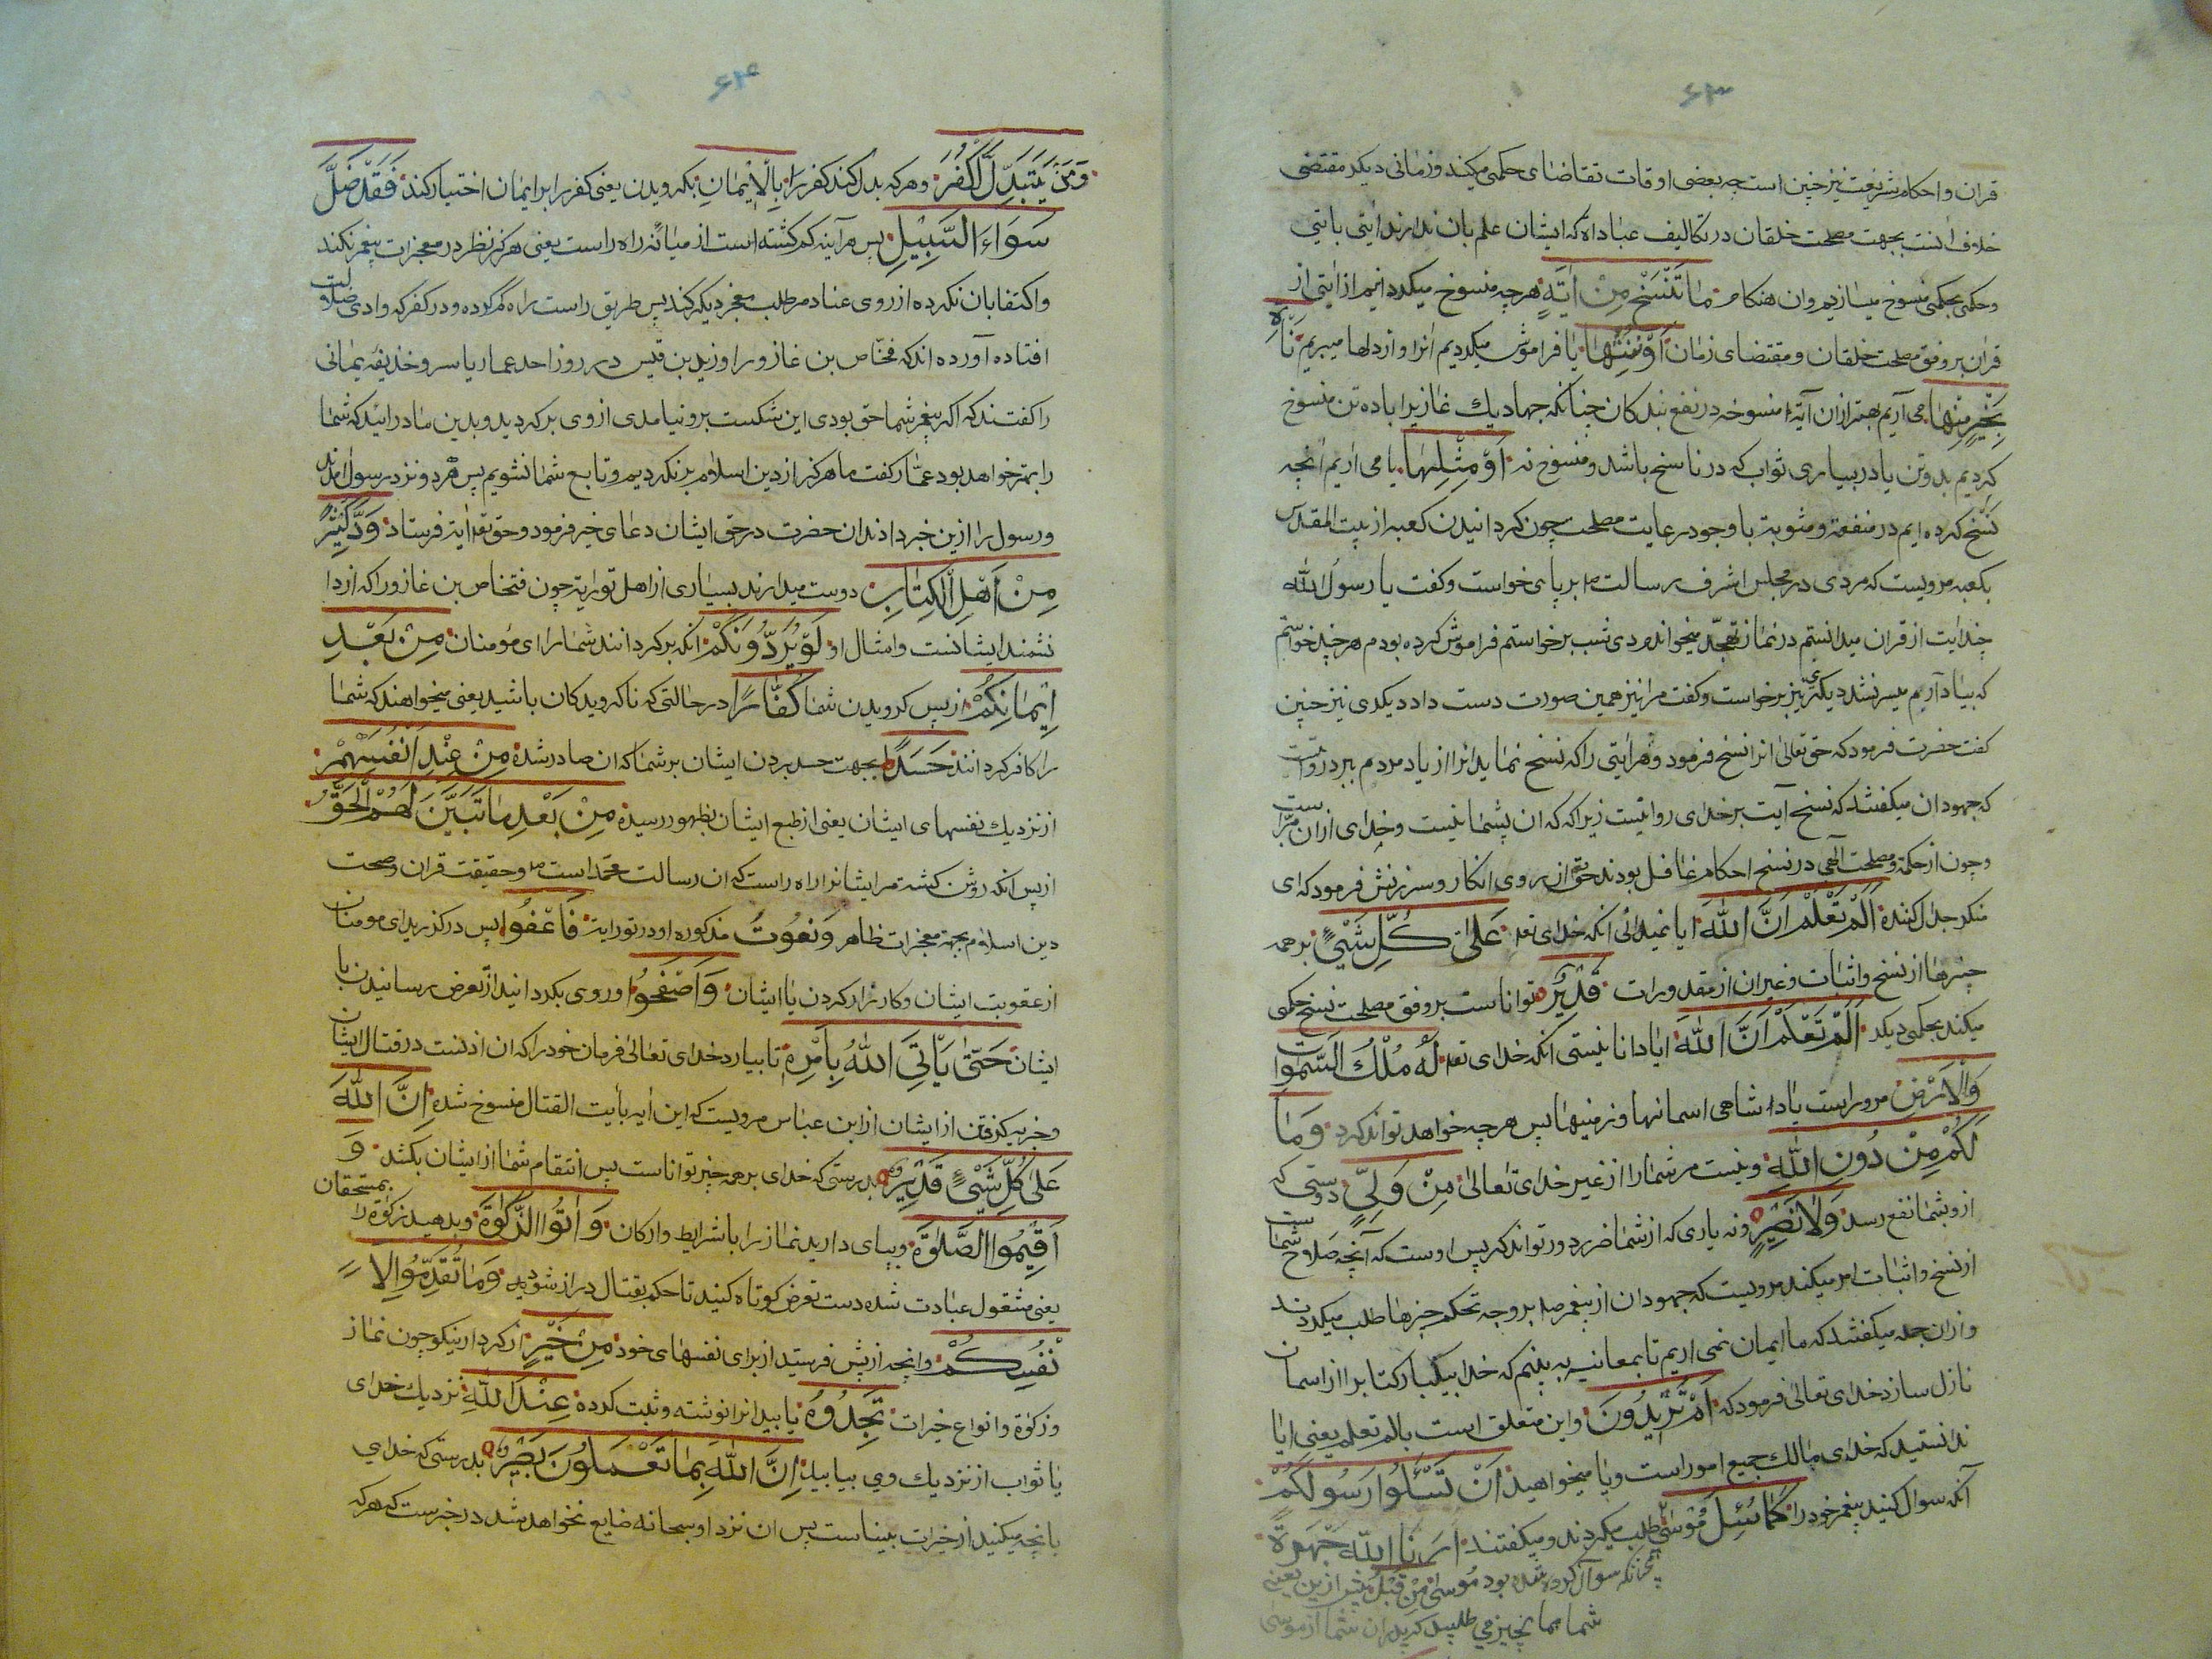 ۶۳
قران و احکام شریعت نیز چنین است چه بعضی اوقات تقاضای حکمی میکند و زمانی دیگر مقتضی
خلاف انست بجهت مصلحت خلقان در تکالیف عباداة که ایشان علم بان ندارند ایتی بایتی
و حکمی بحکمی منسوخ میسازیم وان هنکام مَا نَنْسَخْ مِنْ اٰیَةٍ هرچه منسوخ میکردانیم از ایتی از
قران بروفق مصلحت خلقان و مقتضای زمان اَوْ نُنْسِهَا یا فراموش میکردیم انرا و از دلها میبریم نَأْتِ
بِخَیْرٍ مِنْهَا می آریم بهتر از ان آیة منسوخه در نفع بندکان چنانکه جهاد یك غازی را باده تن منسوخ
کردیم بدو تن یا در بسیاری ثواب که در ناسخ باشد و منسوخ نه اَوْ مِثْلِهَا یا می اریم انچه
نسخ کرده ایم در منفعة و مثوبة با وجود رعایت مصلحت چون کردانیدن کعبه از بیت المقدس
بکعبه مرویست که مردی در مجلس اشرف رسالت بر پای خواست و کفت یا رسول الله
چند ایت از قران میدانستم در نماز تهجد میخواندم دی شب برخواستم فراموش کرده بودم هر چند خواستم
که بیاد آریم میسر نشد دیکری نیز برخواست و کفت مرا نیز همین صورت دست داد دیکری نیز چنین
کفت حضرت فرمود که حق تعالی انرا نسخ فرمود و هر ایتی را که نسخ نماید انرا از یاد مردم ببرد روایت
که جهودان میکفتند که نسخ آیت بر خدای روا نیست زیرا که ان پشمانیست و خدای از ان مبرّا ست
و چون از حکمة و مصلحت الهی در نسخ احکام غافل بودند حق از روی انکار و سرزنش فرمود که ای
منکر جدال کننده اَلَمْ تَعْلَمْ اَنَّ اللّٰهَ ایا نمیدانی انکه خدای تعا عَلٰی کُلِّ شَیْءٍ بر همه
چیزها از نسخ و اثبات و غیر ان از مقدورات قَدِیْرٌ توانا ست بروفق مصلحت نسخ حکمی
میکند بحکمی دیکر اَلَمْ تَعْلَمْ اَنَّ اللّٰهَ ایا دانا نیستی انکه خدای تعا لَهُ مُلْكُ السَّمٰوَاتِ
وَالْاَرْضِ مرور است پادشاهی اسمانها و زمینها پس هرچه خواهد تواند کرد وَمَا
لَکُمْ مِنْ دُونِ اللّٰهِ و نیست مر شما را از غیر خدای تعالی مِنْ وَلِیٍّ دوستی که
ازو بشما نفع رسد وَلَا نَصِیْرٍ و نه یاری که از شما ضرر دور تواند کرد پس اوست که آنچه صلاح شما ست
از نسخ و اثبات امر میکند مرویست که جهودان از پیغمبر ص بروجه تحکم چیزها طلب میکردند
و از ان جمله میکفتند که ما ایمان نمی اریم تا بمعاینه به بینیم که خدا بیکبار کتاب را از اسمان
نازل سازد خدای تعالی فرمود که اَمْ تُرِیْدُوْنَ و این متعلق است بالم تعلم یعنی ایا
ندانستید که خدای مالك جمیع امور است و یا میخواهید اَنْ تَسْئَلُوْا رَسُوْلَکُمْ
آنکه سوال کنید پیغمبر خود را کَمَا سُئِلَ مُوْسٰی طلب میکردند و میکفتند اَرِنَا اللّٰهَ جَهْرَةً
همچنانکه سوآل کرده شده بود موسی مِنْ قَبْلُ پیش ازین یعنی
شما هما نچیز می طلبید که پدران شما از موسی
۶۴
وَمَنْ یَتَبَدَّلِ الْکُفْرَ و هرکه بدل کند کفر را بِالْاِیْمَانِ بکرویدن یعنی کفر را بر ایمان اختیار کند فَقَدْ ضَلَّ
سَوَاءَ السَّبِیْلِ پس هر آینه کم کشته است از میانۀ راه راست یعنی هرکز نظر در معجزات پیغمبر نکند
و اکتفا بان نکرده از روی عناد مر طلب معجز دیکر کند پس طریق راست راه گم کرده و در کفر که وادی ضلالت
افتاده آورده اند که فخاص بن غازورا و زید بن قیس در روز احد عمار یاسر و حذیفه یمانی
را کفتند که اکر پیغمبر شما حق بودی این شکست برو نیامدی از وی برکردید و بدین ما در ائید که شما
را بهتر خواهد بود عمّار کفت ما هرکز از دین اسلام برنکردیم و تابع شما نشویم پس هردو نزد رسول امدند
و رسول را ازین خبر دادند ان حضرت در حق ایشان دعای خیر فرمود و حق تعا ایة فرستاد وَدَّ کَثِیْرٌ
مِنْ اَهْلِ الْکِتَابِ دوست میدارند بسیاری از اهل توریة چون فتخاص بن غازورا که از دا
نشمندایشانست و امثال او لَوْ یَرُدُّوْنَکُمْ انکه برکردانند شما را ای مؤمنان مِنْ بَعْدِ
اِیْمَانِکُمْ از پس کرویدن شما کُفَّارًا در حالتی که ناکرویدکان باشید یعنی میخواهند که شما
را کافر کردانند حَسَدًا بجهت حسد بردن ایشان بر شما که ان صادر شده مِنْ عِنْدِ اَنْفُسِهِمْ
از نزدیك نفسهای ایشان یعنی از طبع ایشان بظهور رسیده مِنْ بَعْدِ مَا تَبَیَّنَ لَهُمُ الْحَقُّ
از پس انکه روشن کشت مر ایشانرا راه راست که ان رسالت محمد است ص و حقیقت قران و صحت
دین اسلام بجهة معجزات ظاهر و نعوت مذکوره او در توریة فَاعْفُوا پس درکذرید ای مومنان
از عقوبت ایشان و کارزار کردن با ایشان وَاصْفَحُوا و روی بکردانید از تعرض رسانیدن با
ایشان حَتّٰی یَاْتِیَ اللّٰهُ بِاَمْرِهِ تا بیارد خدای تعالی فرمان خود را که ان اذنست در قتال ایشان
و جزیه کرفتن از ایشان از ابن عباس مرویست که این ایه بآیت القتال منسوخ شده اِنَّ اللّٰهَ
عَلٰی کُلِّ شَیْءٍ قَدِیْرٌ بدرستی که خدای بر همه چیز توانا ست پس انتقام شما از ایشان بکشد وَ
اَقِیْمُوا الصَّلٰوةَ و بپای دارید نماز را با شرایط و ارکان وَاٰتُوا الزَّکٰوةَ و بدهید زکوة را بمستحقان
یعنی مشغول عبادت شده دست تعرض کوتاه کنید تا حکم بقتال در از شود وَمَا تُقَدِّمُوْا لِاَ
نْفُسِکُمْ و انچه از پیش فرستید از برای نفسهای خود مِنْ خَیْرٍ از کردار نیکو چون نماز
و زکوة و انواع خیرات تَجِدُوْهُ یا بید انرا نوشته و ثبت کرده عِنْدَ اللّٰهِ نزدیك خدای
یا ثواب از نزدیك وی بیابید اِنَّ اللّٰهَ بِمَا تَعْمَلُوْنَ بَصِیْرٌ بدرستی که خدای
بانچه میکنید از خیرات بینا ست پس ان نزد او سبحانه ضایع نخواهد شد در خبر ست که هرکه